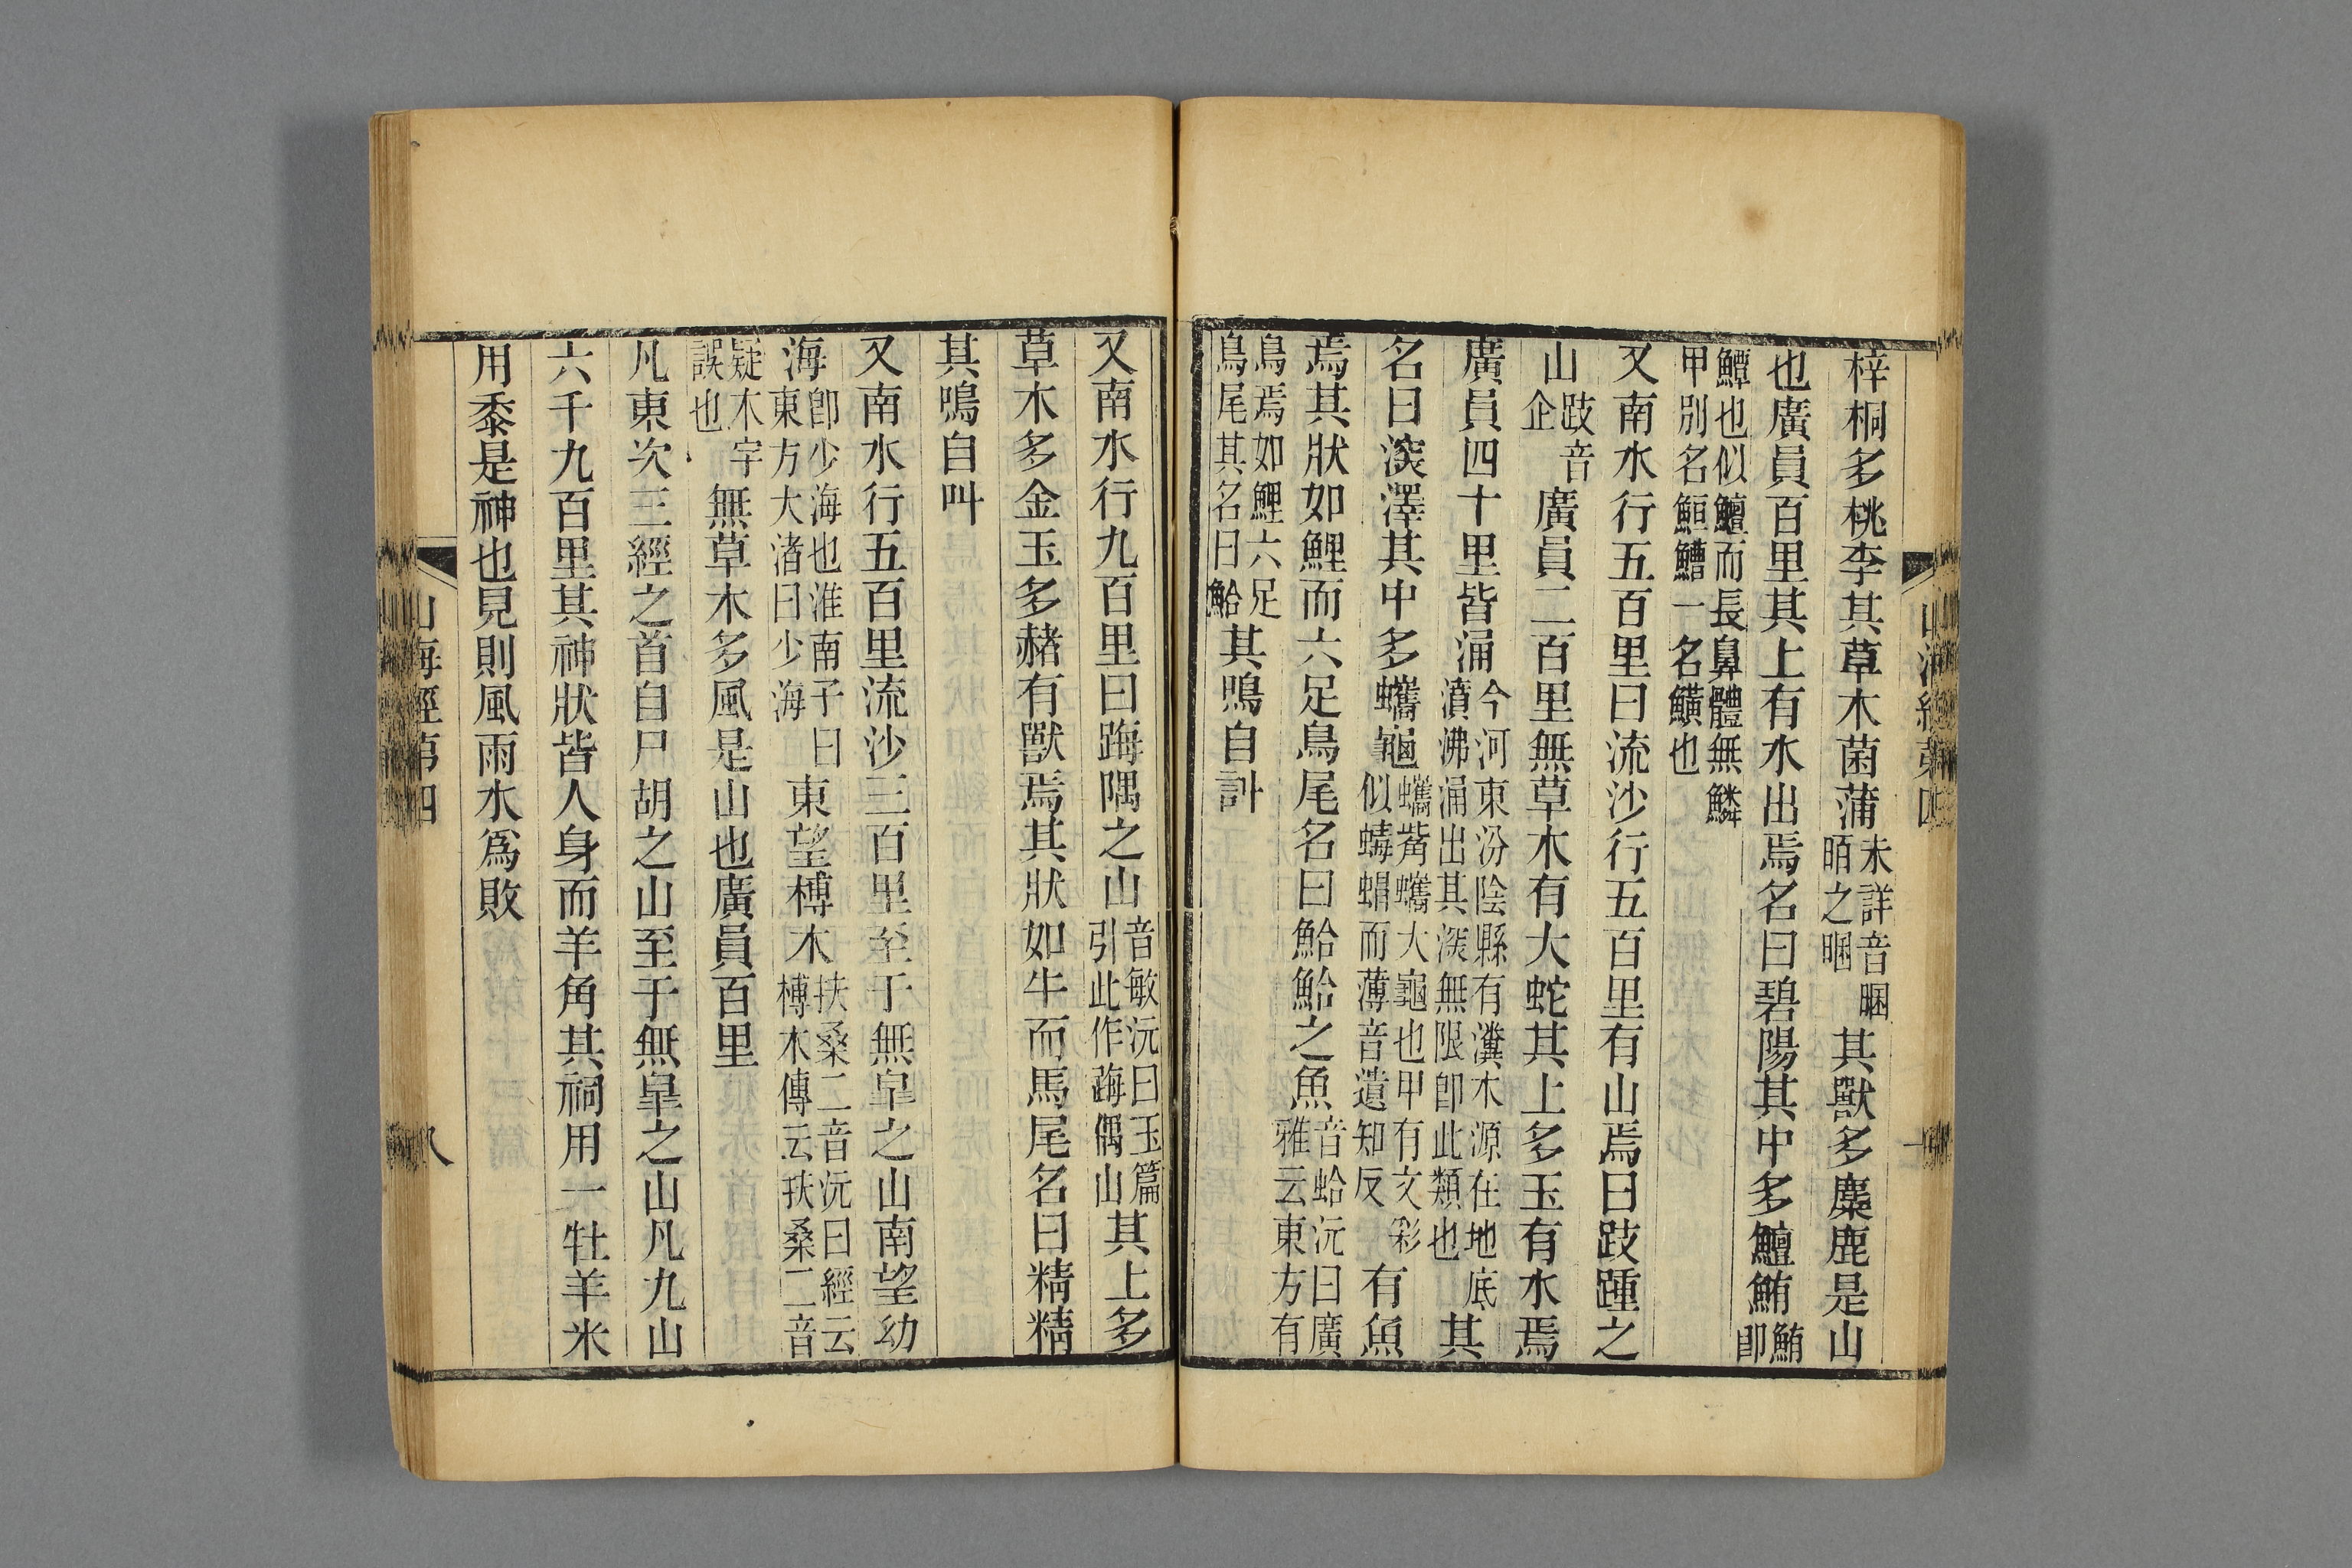 梓桐多桃李其草木菌蒲未詳音䐃䏧之䐃其獸多麋鹿是山
也廣員百里其上有水出焉名曰碧陽其中多鱣鮪鮪卽
鱏也似鱣而長鼻體無鱗甲別名䱭䲛一名鱑也
又南水行五百里曰流沙行五百里有山焉曰跂踵之
山跂音企廣員二百里無草木有大蛇其上多玉有水焉
廣員四十里皆涌今河東汾陰縣有瀵水源在地底濆沸涌出其深無限卽此類也其
名曰深澤其中多蠵龜蠵觜蠵大龜也甲有文彩似蟕蝐而薄音遺知反有魚
焉其狀如鯉而六足鳥尾名曰鮯鮯之魚音蛤沅曰廣雅云東方有
魚焉如鯉六足鳥尾其名曰鮯其鳴自訆
又南水行九百里曰踇隅之山音敏沅曰玉篇引此作踇偶山其上多
草木多金玉多赭有獸焉其狀如牛而馬尾名曰精精
其鳴自叫
又南水行五百里流沙三百里至于無皐之山南望幼
海卽少海也淮南子曰東方大渚曰少海東望榑木扶桑二音沅曰經云榑木傳云扶桑二音
疑木字誤也無草木多風是山也廣員百里
凡東次三經之首自尸胡之山至于無皐之山凡九山
六千九百里其神狀皆人身而羊角其祠用一牡羊米
用黍是神也見則風雨水爲敗
山海經第四
八